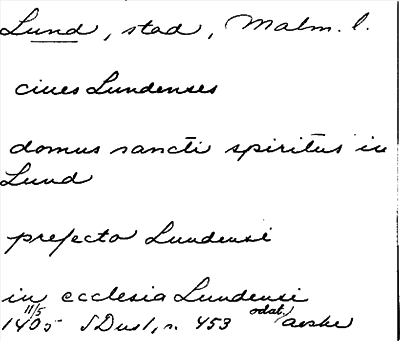 Lund, stad, Malm. l.
ciues Lundenses
domus sancti spiritus in
Lund
prefecto Lundensi
in ecclesia Lundensi
11/5 odat/
1405 SDns1, s. 453 avskr